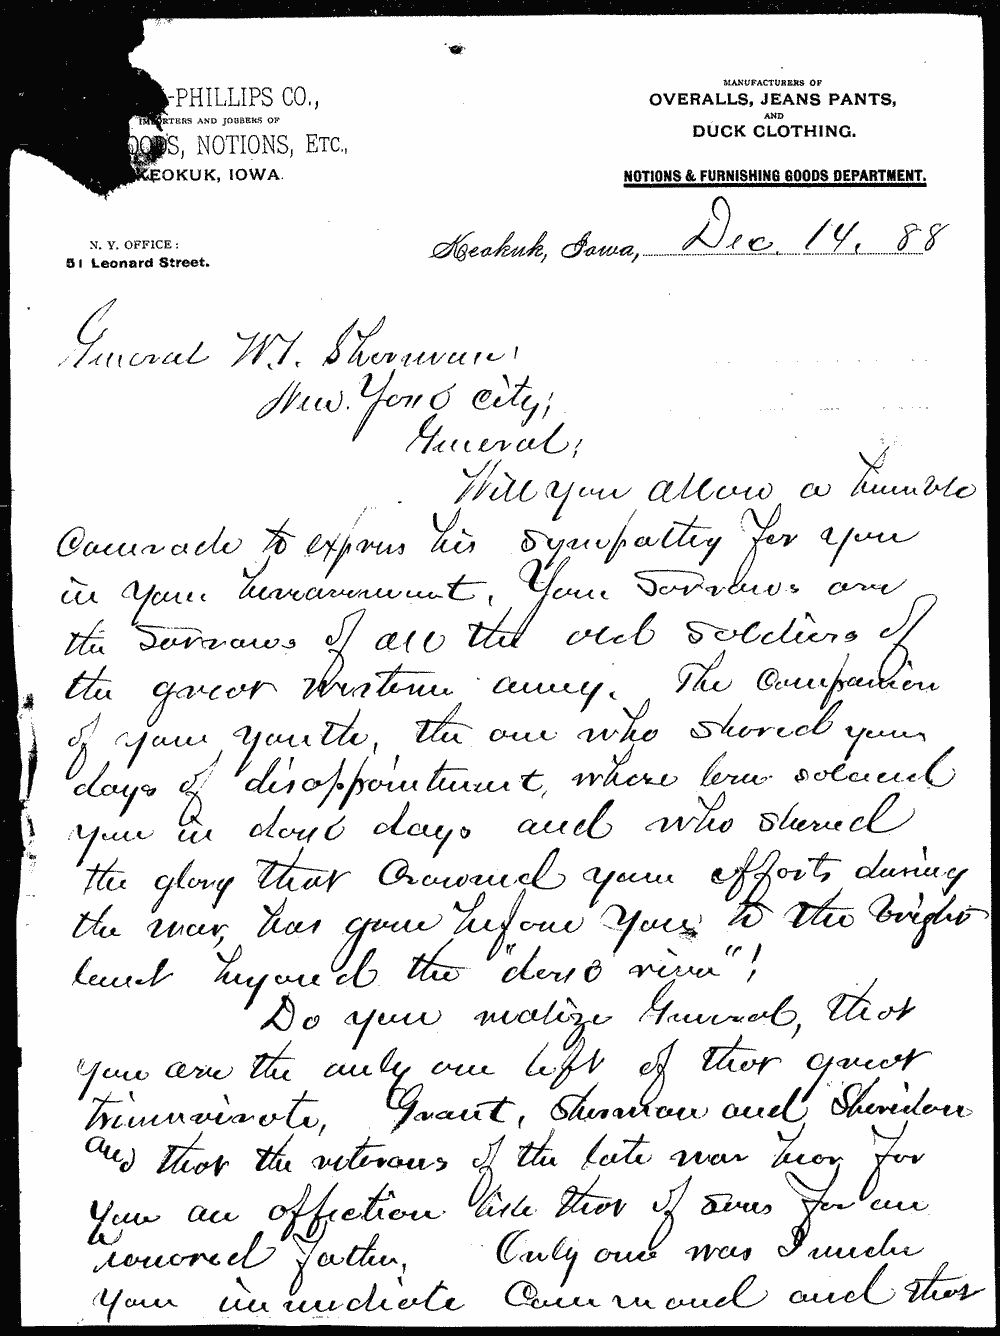 -PHILLIPS CO.,
IMPORTERS AND JOBBERS OF
GOODS, NOTIONS, ETC.,
KEOKUK, IOWA.
N. Y. OFFICE:
51 Leonard Street.
MANUFACTURERS OF
OVERALLS, JEANS PANTS,
AND
DUCK CLOTHING.
NOTIONS & FURNISHING GOODS DEPARTMENT.
Keokuk, Iowa, Dec. 14. 88
General W.T. Sherman!
New York City;
General;
Will you allow a humble
Comrade to express his sympathy for you
in your bereavement. Your sorrows are
the sorrows of all the old soldiers of
the great western army. The Companion
of your youth, the one who shared your
days of disappointment, whose love solaced
you in dark days and who shared
the glory that crowned your efforts during
the war, has gone before you to the bright
land beyond the "dark river"!
Do you realize General, that
you are the only one left of that great
triumvirate, Grant, Sherman and Sheridan
and that the veterans of the late war bear for
you an affection like that of sons for an
honored father. Only once was I under
your immediate Command and that